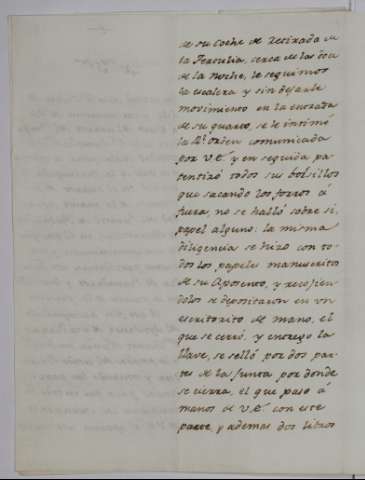 de su coche de retirada de
la Tertulia, cerca de las doce
de la noche, le seguimos
la escalera y sin dejarle
movimiento en la entrada
de su quarto, se le intimó
la Rl. orden comunicada
por V.E. y en seguida pa-
tentizó todos sus bolsillos
que sacando los forros á
fuera, no se halló sobre si,
papel alguno: la misma
diligencia se hizo con to-
dos los papeles manuscritos
de su Aposento, y recojien-
dolos se depositaron en un
escritorito de mano, el
que se cerró, y entregó la
llave, se selló por dos par-
tes de la junta por donde
se cierra, el que pasó á
manos de V.E. con este
parte, y ademas dos libros